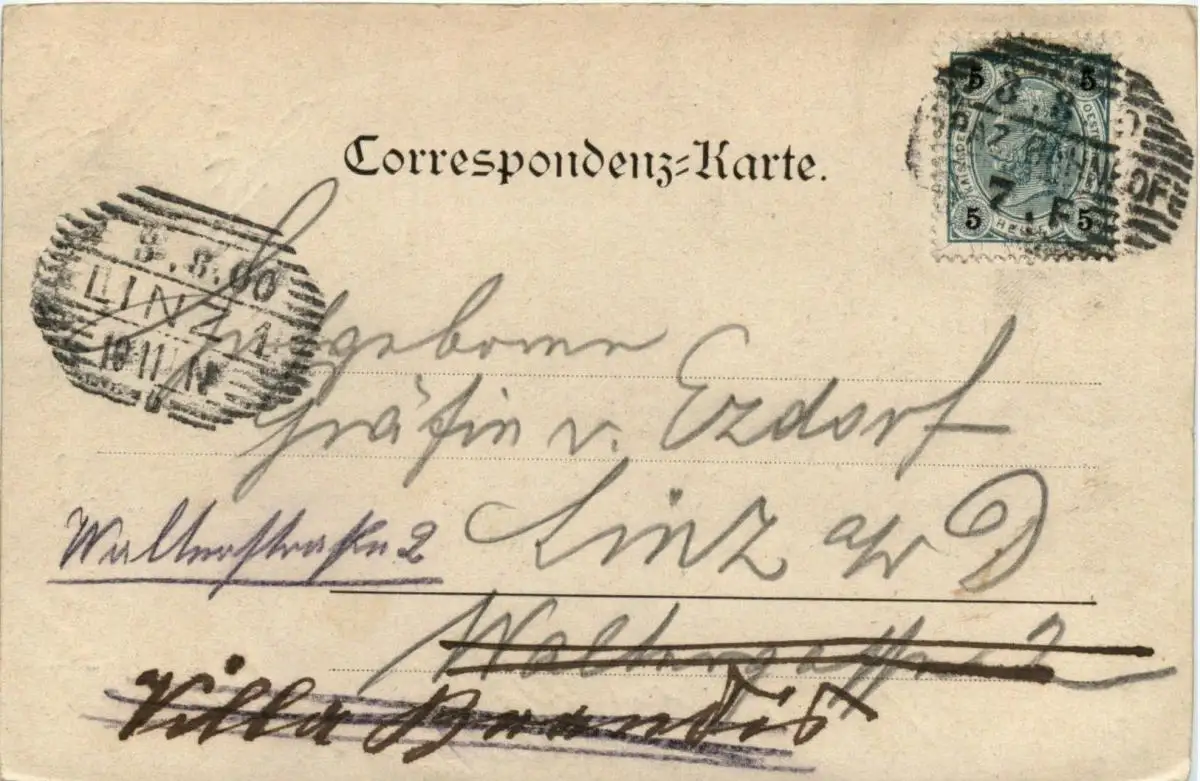 Correspondenz=Karte.
5 5
5 5
8.8.00
LINZ 1
10-11 N
Hochgeborne
Gräfin v. Ezdorf
Linz a/D
Walterstraße 2
Waltergasse 2
Villa Brandis